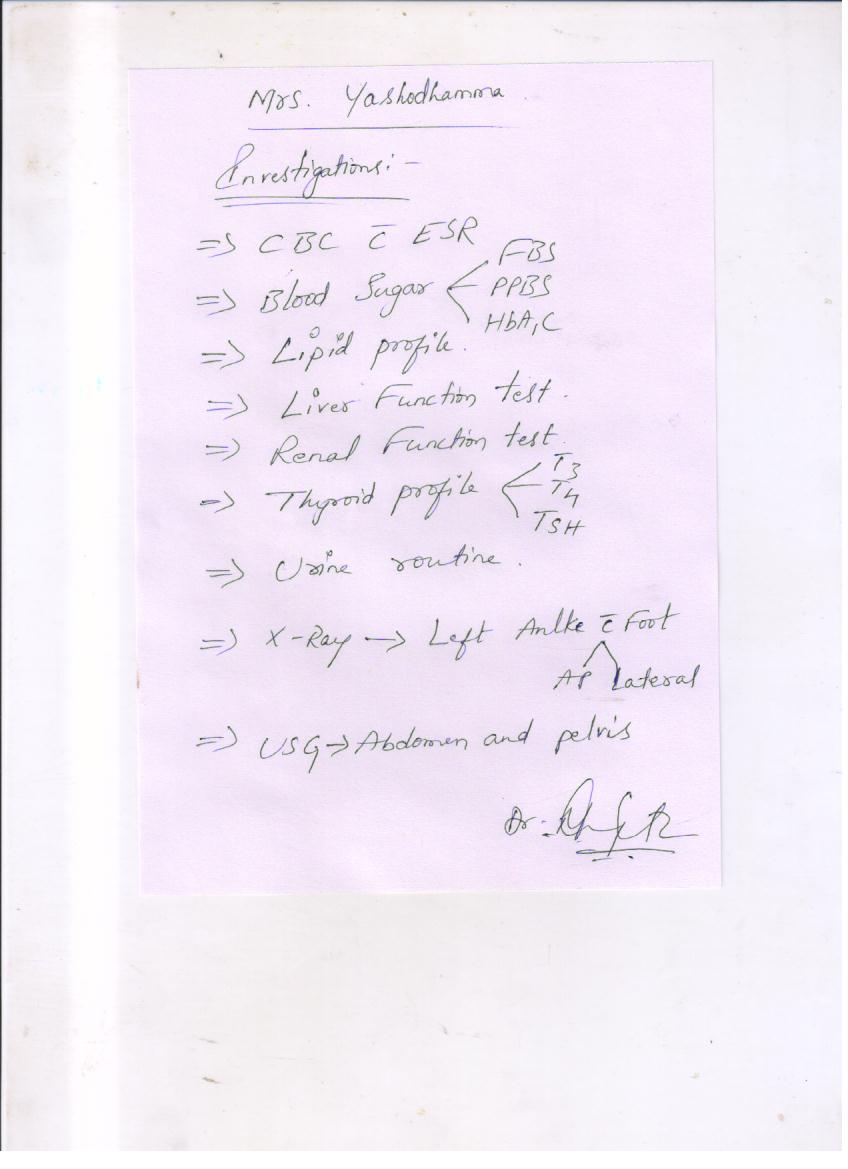 Mrs. Yashodhamma
Investigations:-
=> CBC c̄ ESR
=> Blood Sugar < FBS
PPBS
HbA1C
=> Lipid profile.
=> Liver Function test.
=> Renal Function test.
=> Thyroid profile < T3
T4
TSH
=> Urine routine.
=> X-Ray -> Left Anlke c̄ Foot
AP Lateral
=> USG -> Abdomen and pelvis
Dr.